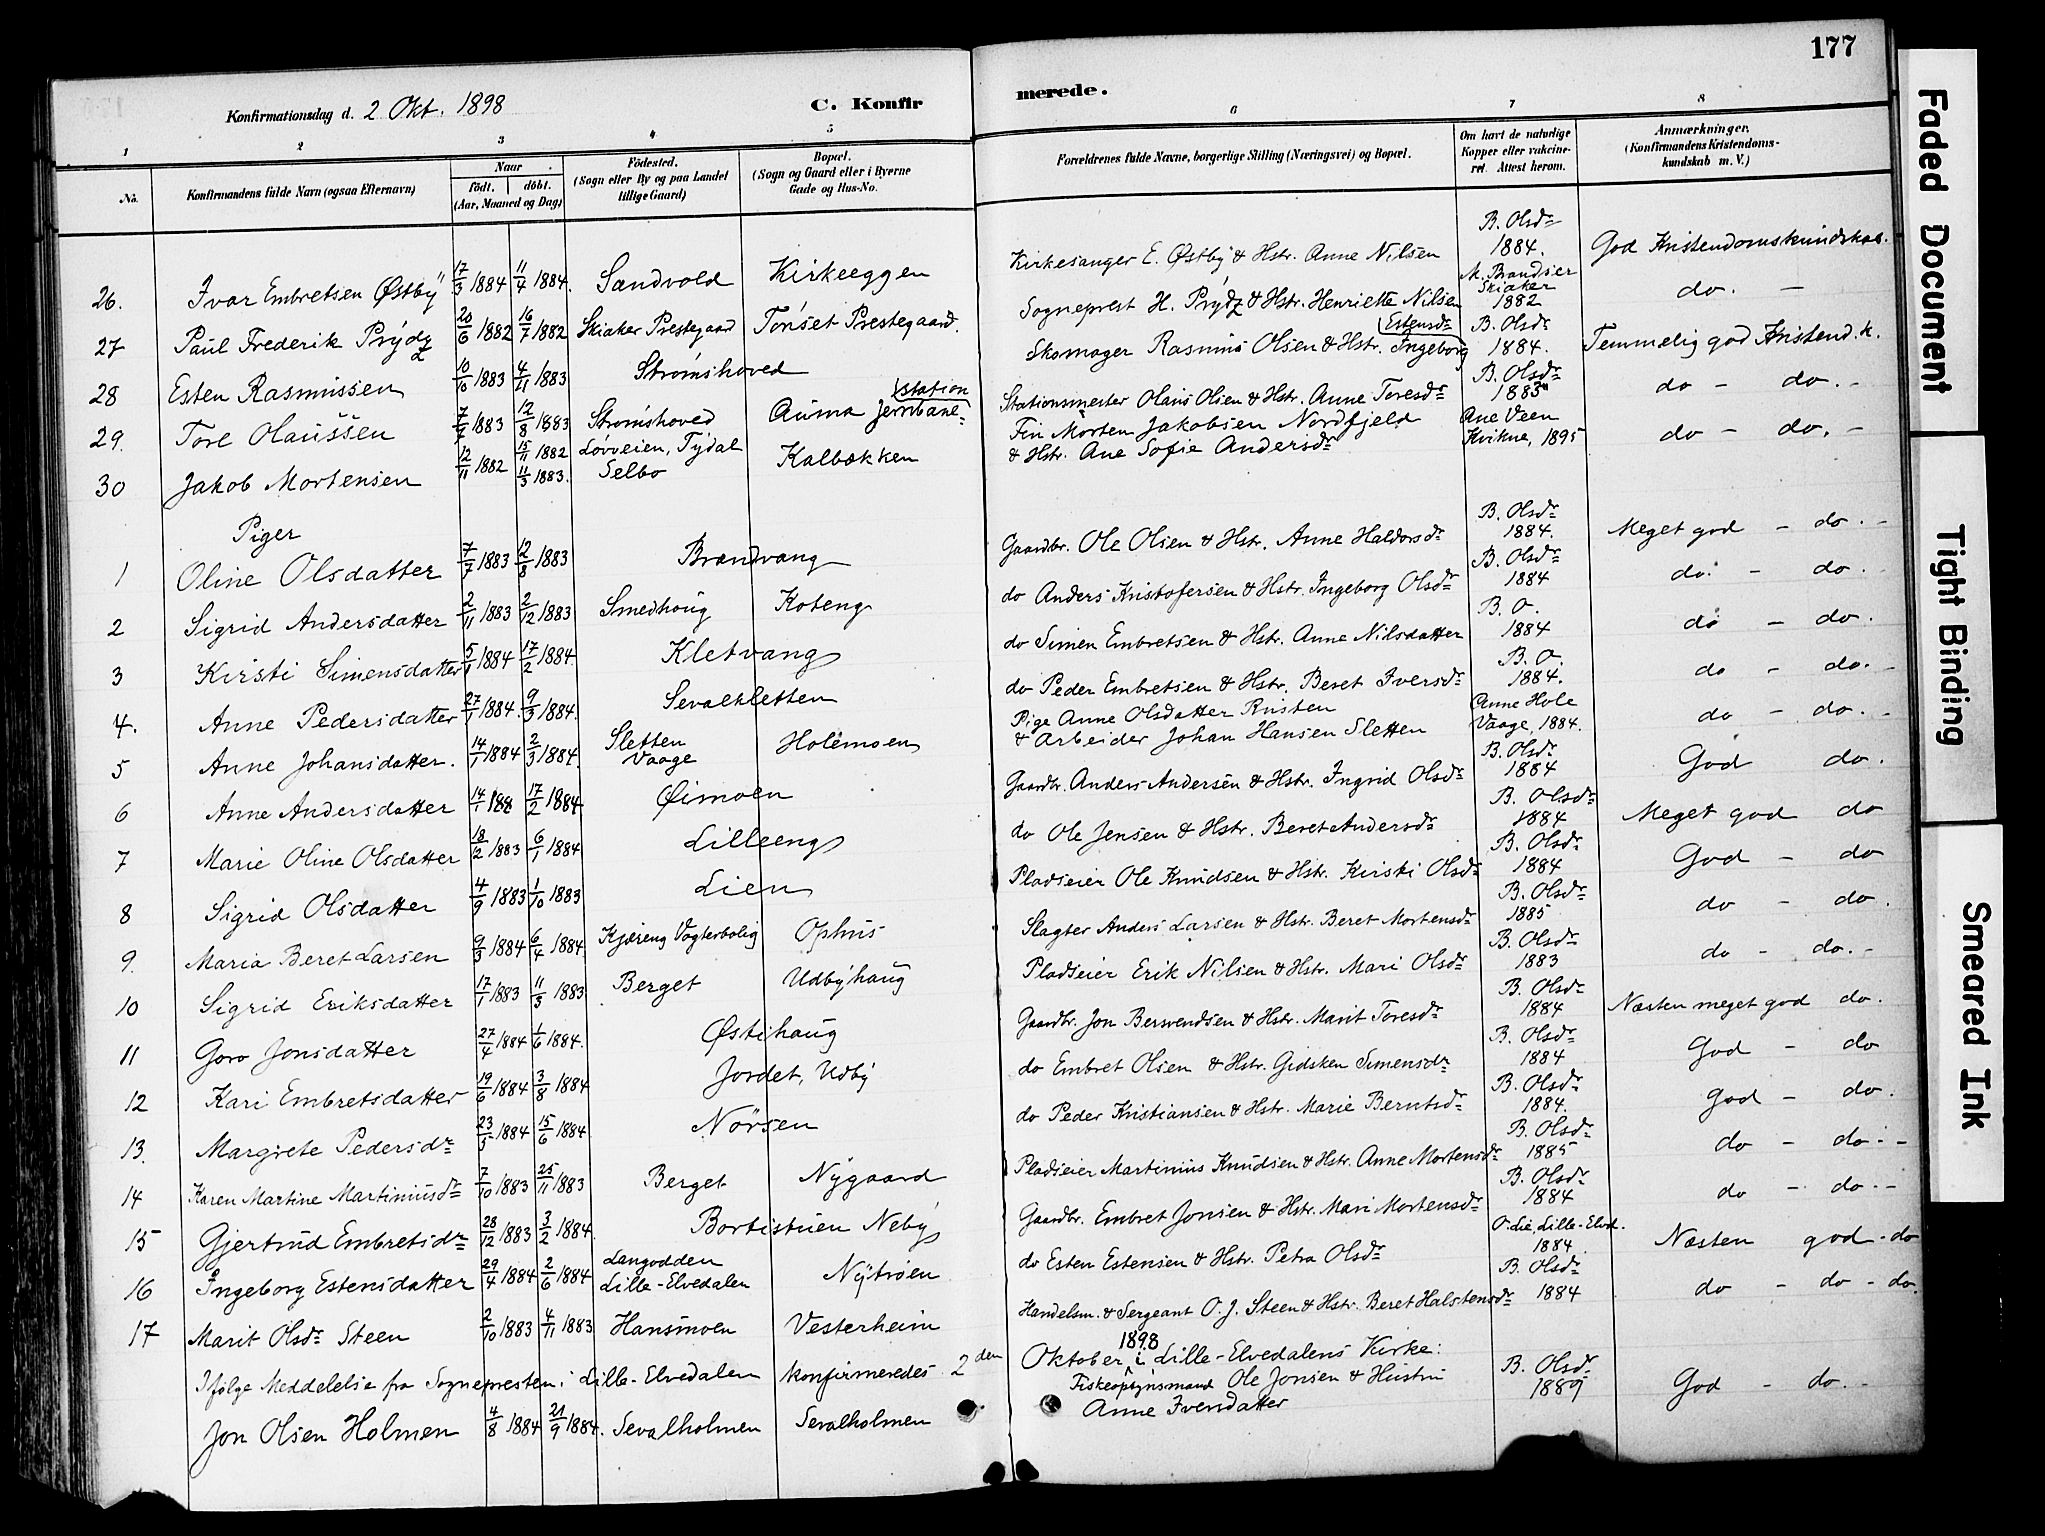 177
Konfirmationsdag d. 2 Okt. 1898 C. Konfir merede.
1 2 3 4 5 6 7 8
No. Konfirmandens fulde Navn (ogsaa Efternavn) Naar født. døbt. (Aar, Maaned og Dag) Fødested. (Sogn eller By og paa Landet tillige Gaard) Bopæl. (Sogn og Gaard eller i Byerne Gade og Hus-No. Forældrenes fulde Navne, borgerlige Stilling (Næringsvei) og Bopæl. Om havt de naturlige Kopper eller vakcineret. Attest herom. Anmærkninger. (Konfirmandens Kristendomskundskab m. V.)
26. Ivar Embretsen Østby 17/3 1884 11/4 1884. Sandvold Kirkeeggen Kirkesanger E. Østby & Hstr. Anne Nilsen B. Olsdr 1884. God Kristendomskundskab.
27 Paul Frederik Prydz 20/6 1882 16/7 1882 Skiaker Prestegaard Tønset Prestegaard. Sogneprest H. Prydz & Hstr. Henriette Nilsen M. Brandser Skiaker 1882 do. —
28 Esten Rasmussen 10/10 1883 4/11 1883 Strømshoved Skomager Rasmus Olsen & Hstr. Ingeborg Estensdr B. Olsdr 1884. Temmelig god Kristend. k.
29. Tore Olaussen 7/7 1883 12/8 1883 Strømshoved Auma Jernbanestation Stationsmester Olaus Olsen & Hstr. Anne Toresdr B. Olsdr 1885 do - do. -
30 Jakob Mortensen 12/11 1882 15/11 1882 11/3 1883. Løvveien, Tydal Selbo Kalbækken Fin Morten Jakobsen Nordfjeld & Hstr. Ane Sofie Andersdr Ane Veen Kvikne, 1895 do - do. -
Piger
1 Oline Olsdatter 7/7 1883 12/8 1883 Brandvang Gaardbr. Ole Olsen & Hstr. Anne Haldorsdr B. Olsdr 1884. Meget god - do. -
2 Sigrid Andersdatter 2/11 1883 2/12 1883 Smedhoug Koteng do Anders Kristofersen & Hstr. Ingeborg Olsdr B. Olsdr 1884 do. - do.
3 Kirsti Simensdatter 5/1 1884 17/2 1884. Kletvang do Simen Embretsen & Hstr. Anne Nilsdatter B. O. 1884 do - do.
4. Anne Pedersdatter 27/1 1884. 9/3 1884. Sevalkletten do Peder Embretsen & Hstr. Beret Iversdr B. O. 1884. do - do. -
5 Anne Johansdatter. 14/1 1884 2/3 1884. Sletten Vaage Holemoen Pige Anne Olsdatter Rusten & Arbeider Johan Hansen Sletten Anne Hole Vaage, 1884. do - do. -
6 Anne Andersdatter 14/1 188 17/2 1884. Øimoen Gaardbr. Anders Andersen & Hstr. Ingrid Olsdr B. Olsdr 1884 God do.
7 Marie Oline Olsdatter 18/12 1883 6/1 1884 Lilleeng do Ole Jensen & Hstr. Beret Andersdr B. Olsdr 1884 Meget god do
8 Sigrid Olsdatter 4/9 1883 1/10 1883 Lien Pladseier Ole Knudsen & Hstr. Kirsti Olsdr B. Olsdr 1884 God - do
9. Maria Beret Larsen 9/3 1884 6/4 1884 Kjæreng Vogterbolig Ophus Slagter Anders Larsen & Hstr. Beret Mortensdr B. Olsdr 1885 do - do.
10 Sigrid Eriksdatter 17/1 1883 11/3 1883 Berget Udbyhaug Pladseier Erik Nilsen & Hstr. Mari Olsdr B. Olsdr 1883 do - do. -
11 Goro Jonsdatter 27/4 1884 1/6 1884. Østihaug Gaardbr. Jon Bersvendsen & Hstr. Marit Toresdr B. Olsdr 1884 Næsten meget god do.
12 Kari Embretsdatter 19/6 1884 3/8 1884 Jordet, Udby do Embret Olsen & Hstr. Gidsken Simensdr B. Olsdr 1884 God - do
13. Margrete Pedersdr 23/5 1884 15/6 1884 Nørsen do Peder Kristiansen & Hstr. Marie Berntsdr B. Olsdr 1884. God - do.
14 Karen Martine Martiniusdr 7/10 1883 25/11 1883 Berget Nygaard Pladseier Martinius Knudsen & Hstr. Anne Mortensdr B. Olsdr 1885 do - do. -
15 Gjertrud Embretsdr 28/12 1883 3/2 1884. Bortistuen Neby Gaardbr. Embret Jonsen & Hstr. Mari Mortensdr B. Olsdr 1884 do - do. -
16 Ingeborg Estensdatter 29/4 1884 2/6 1884 Langodden Lille-Elvedalen Nytrøen do Esten Estensen & Hstr. Petra Olsdr O. Lie, Lille-Elvd. 1884. Næsten god - do
17 Marit Olsdr Steen 2/10 1883 4/11 1883 Hansmoen Vesterheim Handelsm. & Sergeant O. J. Steen & Hstr. Beret Halstensdr B. Olsdr 1884 do - do - do.
Ifølge Meddelelse fra Sognepresten i Lille-Elvedalen konfirmeredes 2den Oktober 1898 i Lille-Elvedalens Kirke:
Jon Olsen Holmen 4/8 1884 21/9 1884. Sevalholmen Sevalholmen Fiskeopsynsmand Ole Jonsen & Hustru Anne Iversdatter B. Olsdr 1889 God - do. -
Faded Document
Tight Binding
Smeared Ink